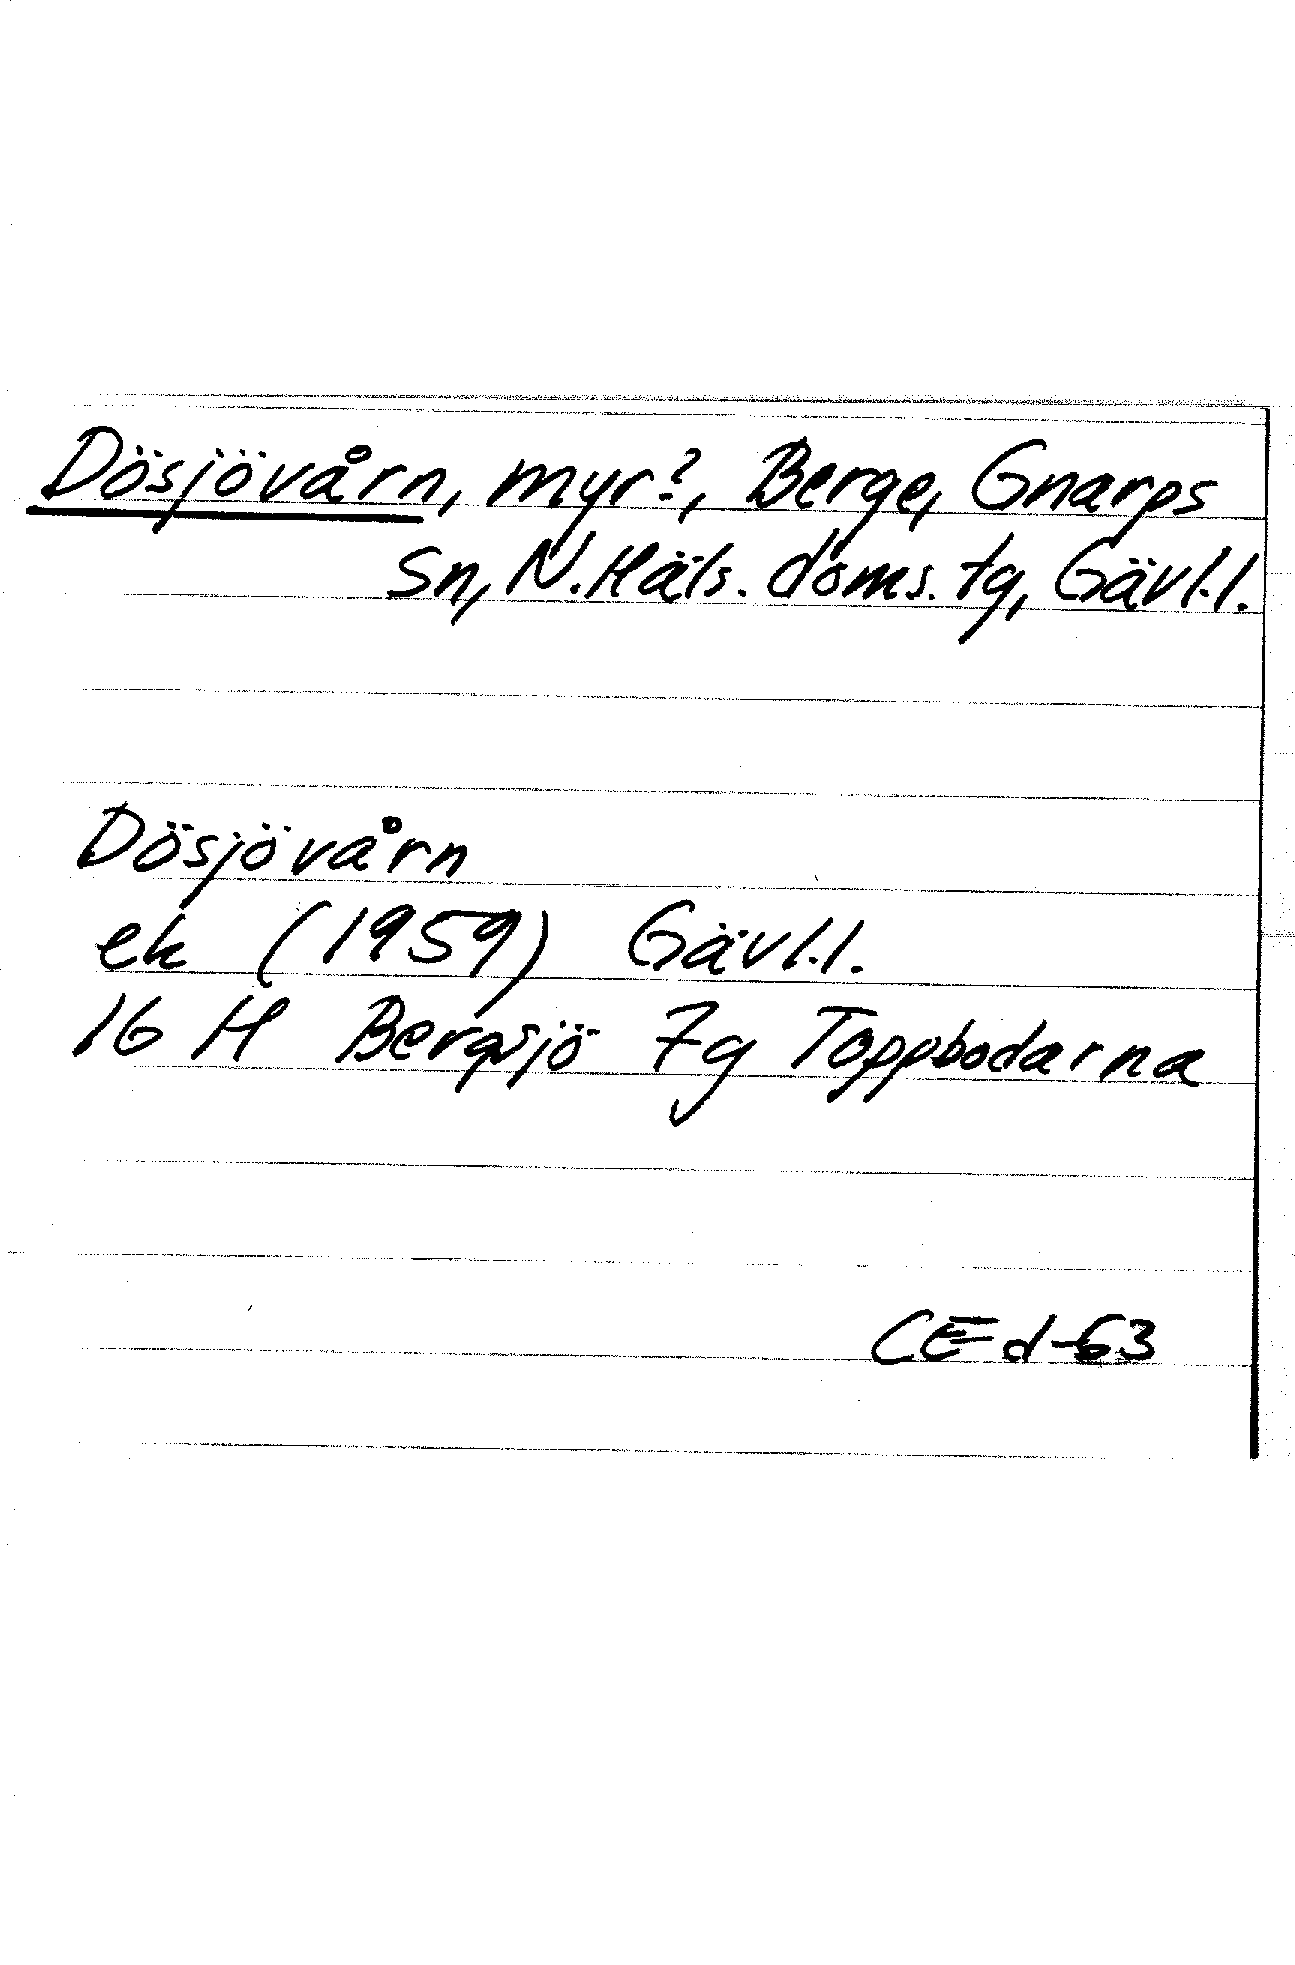 Dösjövårn, myr?, Berge, Gnarps
Sn, N. Häls. doms. tg, Gävl.l.
Dösjövårn
ek (1959) Gävl.l.
16 H Bergsjö 7g Toppbodarna
CE d-63